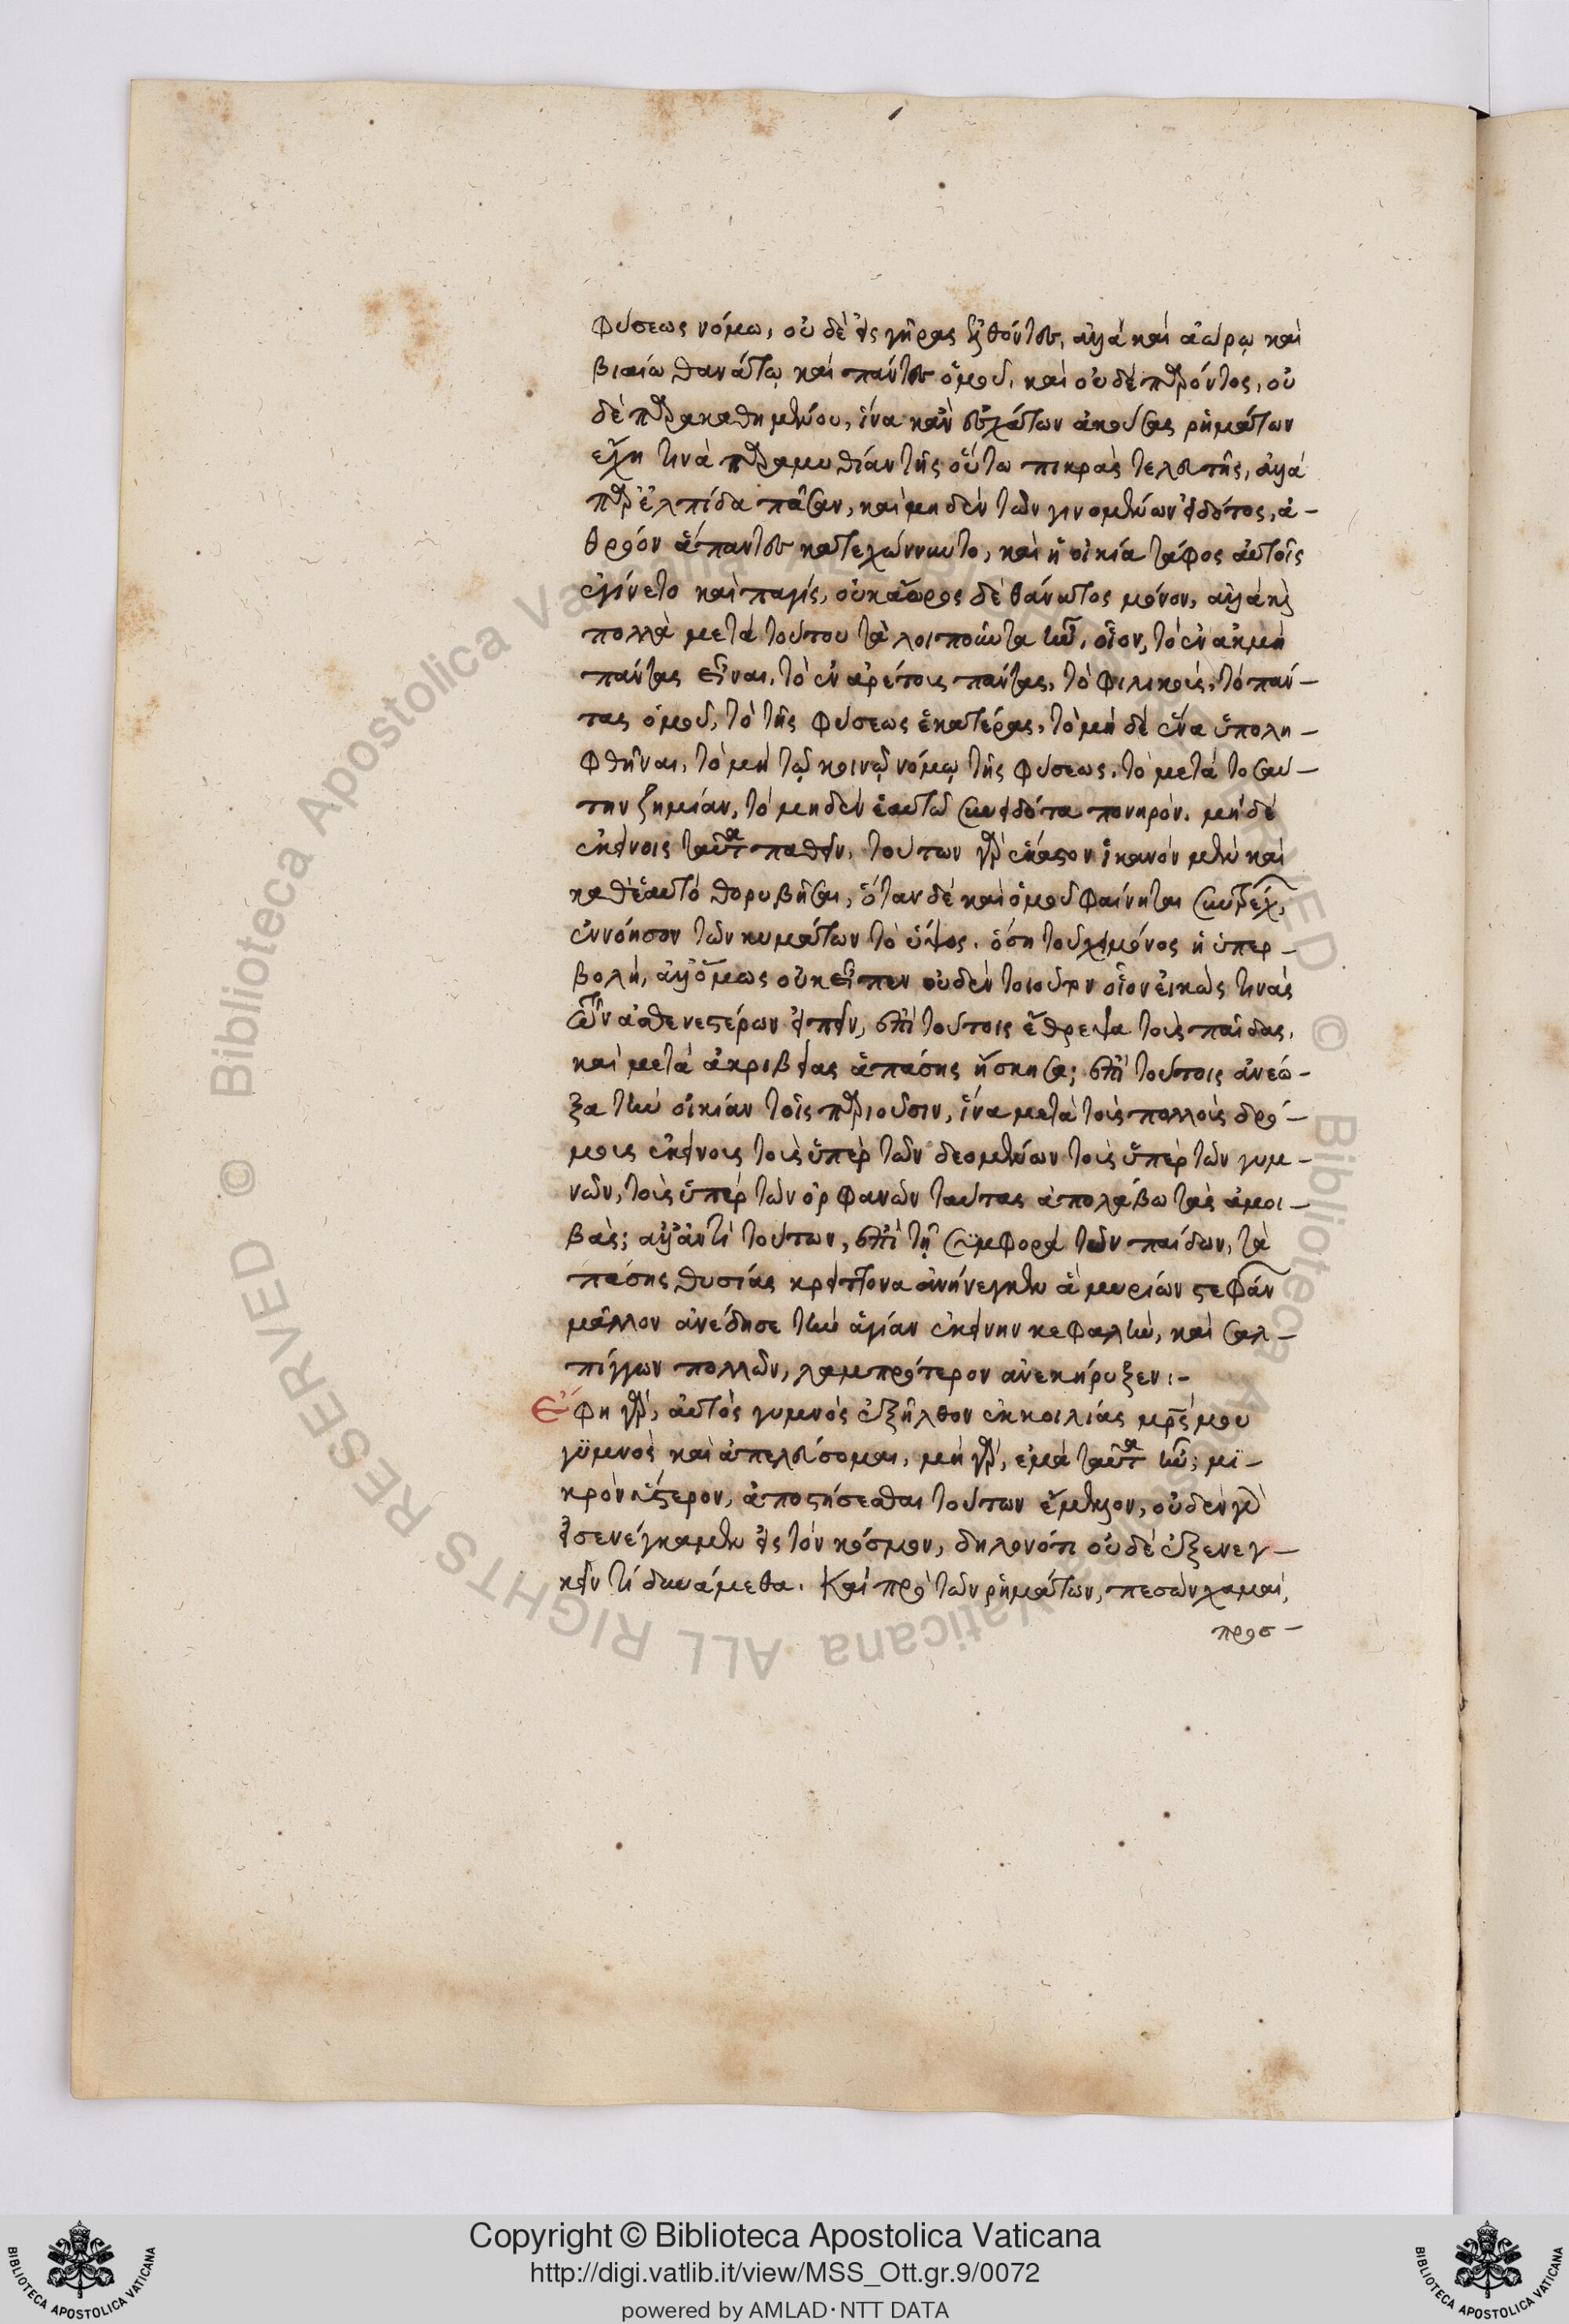 φύσεως νόμω, οὐδὲ εἰς γῆρας ἐλθόντες, ἀλλὰ καὶ ἀώρῳ καὶ
βιαίω θανάτῳ καὶ πάντες ὁμοῦ, καὶ οὐδὲ παρόντος, οὐ
δὲ παρακαθημένου, ἵνα κἂν ἐσχάτων ἀκούσας ῥημάτων
ἔχῃ τινὰ παραμυθίαν τῆς οὕτω πικρᾶς τελευτῆς, ἀλλὰ
παρ' ἐλπίδα πᾶσαν, καὶ μηδὲν τῶν γινομένων εἰδότος, ἀ-
θρόον ἅπαντες κατεχώννυντο, καὶ ἡ οἰκία τάφος αὐτοῖς
ἐγίνετο καὶ παγίς, οὐκ ἄωρος δὲ θάνατος μόνον, ἀλλὰ καὶ
πολλὰ μετὰ τούτου τὰ λοιποῦντα ἦν, οἷον, τὸ ἐν ἀκμῇ
πάντας εἶναι, τὸ ἐν ἀρέτοις πάντας, τὸ φιλικοὺς, τὸ πάν-
τας ὁμοῦ, τὸ τῆς φύσεως ἑκατέρας, τὸ μὴ δὲ ἕνα ὑπολη-
φθῆναι, τὸ μὴ τῷ κοινῷ νόμῳ τῆς φύσεως, τὸ μετὰ τοσαύ-
την ζημίαν, τὸ μηδὲν ἑαυτῶ συνειδότα πονηρὸν, μὴ δὲ
ἐκείνοις ταῦτα παθεῖν, τούτων γὰρ ἕκαστον ἱκανὸν μὲν καὶ
καθ' ἑαυτὸ θορυβῆσαι, ὅταν δὲ καὶ ὁμοῦ φαίνηται συντρέχ,
ἐννόησον τῶν κυμάτων τὸ ὕψος, ὅση τοῦ χειμῶνος ἡ ὑπερ-
βολὴ, ἀλλ' ὅμως οὐκ εἶπεν οὐδὲν τοιοῦτον οἷον εἰκὼς τινὰς
τῶν ἀσθενεστέρων εἰπεῖν, ἐπὶ τούτοις ἔθρεψα τοὺς παῖδας,
καὶ μετὰ ἀκριβείας ἁπάσης ἤσκησα; ἐπὶ τούτοις ἀνεώ-
ξα τὴν οἰκίαν τοῖς παριοῦσιν, ἵνα μετὰ τοὺς πολλοὺς δρό-
μους ἐκείνους τοὺς ὑπὲρ τῶν δεομένων τοὺς ὑπὲρ τῶν γυμ-
νῶν, τοὺς ὑπὲρ τῶν ὀρφανῶν ταύτας ἀπολάβω τὰς ἀμοι-
βὰς; ἀλλ' ἀντὶ τούτων, ἐπὶ τῇ συμφορᾷ τῶν παίδων, τὰ
πάσης θυσίας κρείττονα ἀνήνεγκεν ἃ μυρίων στεφάν
μᾶλλον ἀνέδησε τὴν ἁγίαν ἐκείνην κεφαλὴν, καὶ σαλ-
πίγγων πολλῶν, λαμπρότερον ἀνεκήρυξεν:-
Ἔφη γὰρ, αὐτὸς γυμνὸς ἐξῆλθον ἐκ κοιλίας μρς μου
γϋμνὸς καὶ ἀπελεύσομαι, μὴ γὰρ, ἐμὰ ταῦτα ἦν; μϊ-
κρὸν ὕστερον, ἀποστήσεσθαι τούτων ἔμελλον, οὐδὲν γὰρ
εἰσενέγκαμεν εἰς τὸν κόσμον, δηλονότι οὐδὲ ἐξενεγ-
κεῖν τὶ δυνάμεθα. Καὶ πρὸ τῶν ῥημάτων, πεσὼν χαμαὶ,
προσ-
Copyright © Biblioteca Apostolica Vaticana
http://digi.vatlib.it/view/MSS_Ott.gr.9/0072
powered by AMLAD·NTT DATA